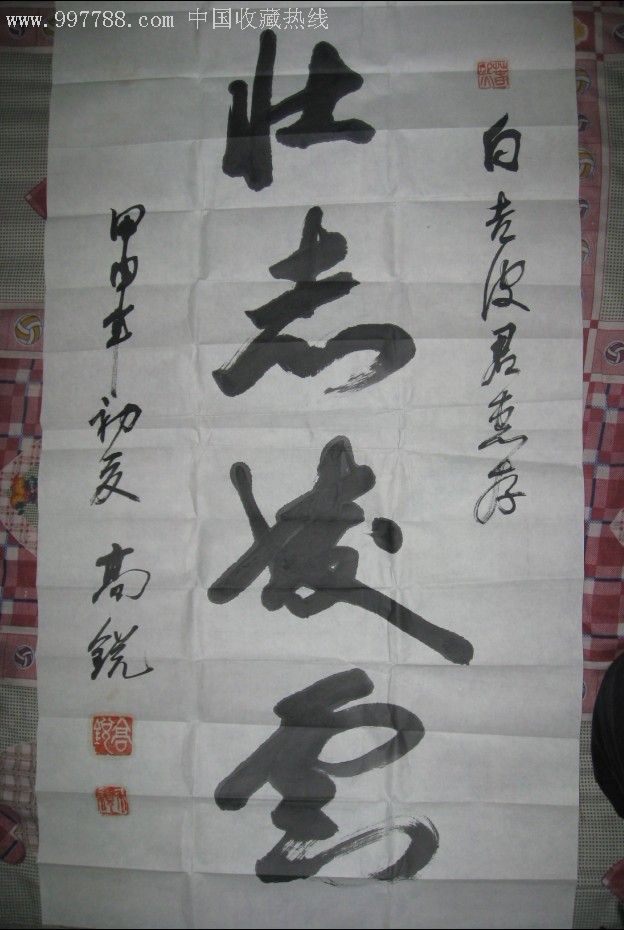 www.997788.com 中国收藏热线
白吉波君惠存
壮志凌云
甲申年初夏 高锐
高锐